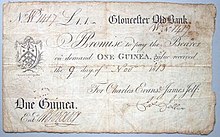 No 1417 £1.1. Gloucester Old Bank.
No 1417
I Promise to pay the Bearer
on demand ONE GUINEA, value received
the 9 day of Nov 1813
For Charles Evans & James Jelf
One Guinea.
Entd